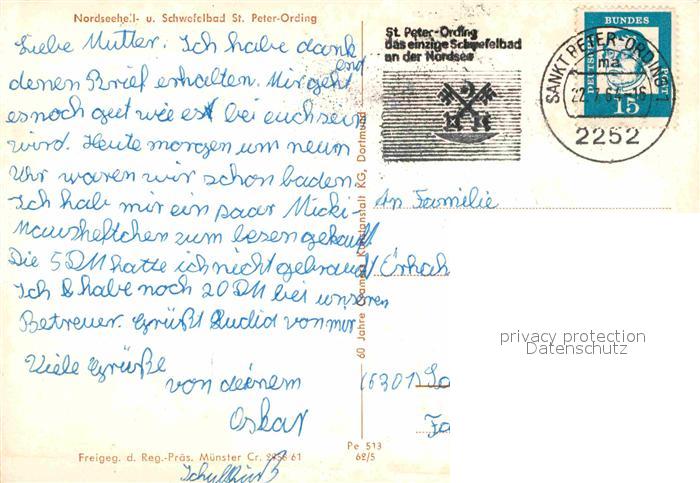 Nordseeheil- u. Schwefelbad St. Peter-Ording
Liebe Mutter. Ich habe dank
end
denen Brief erhalten. Mir geht
es noch gut wie es bei euch sein
wird. Heute morgen um neun
Uhr waren wir schon baden.
Ich hab mir ein paar Micki-
Mausheftchen zum lesen gekauf
Die 5 DM hatte ich nicht gebrau
Ich habe noch 20 DM bei unseren
Betreuer. Grüßt von mir
Viele Grüße
von deinem
Oskar
Freigeg. d. Reg.-Präs. Münster Cr. 61
Pe 513
62/5
60 Jahre Kunstanstalt KG, Dortmund
St. Peter-Ording
das einzige Schwefelbad
an der Nordsee
SANKT PETER-ORDING
22.7.64-16
2252
DEUTSCHE BUNDESPOST
15
An Familie
(6301)
privacy protection
Datenschutz